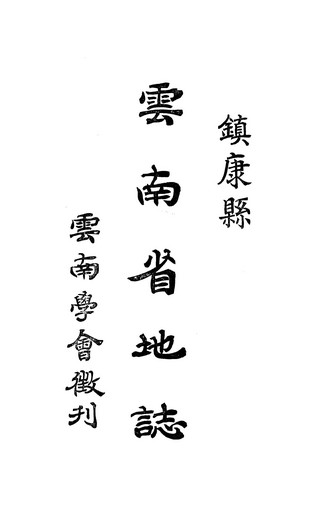 鎮康縣
雲南省地誌
雲南學會徵刊